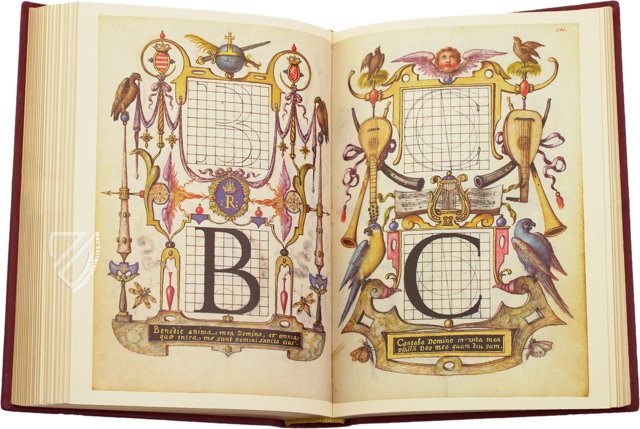 B
R
B
Benedic anima mea Domino, et omnia
quæ intra me sunt nomini sancto eius.
C
C
Cantabo Domino in vita mea
psalla Deo meo quam diu sum.